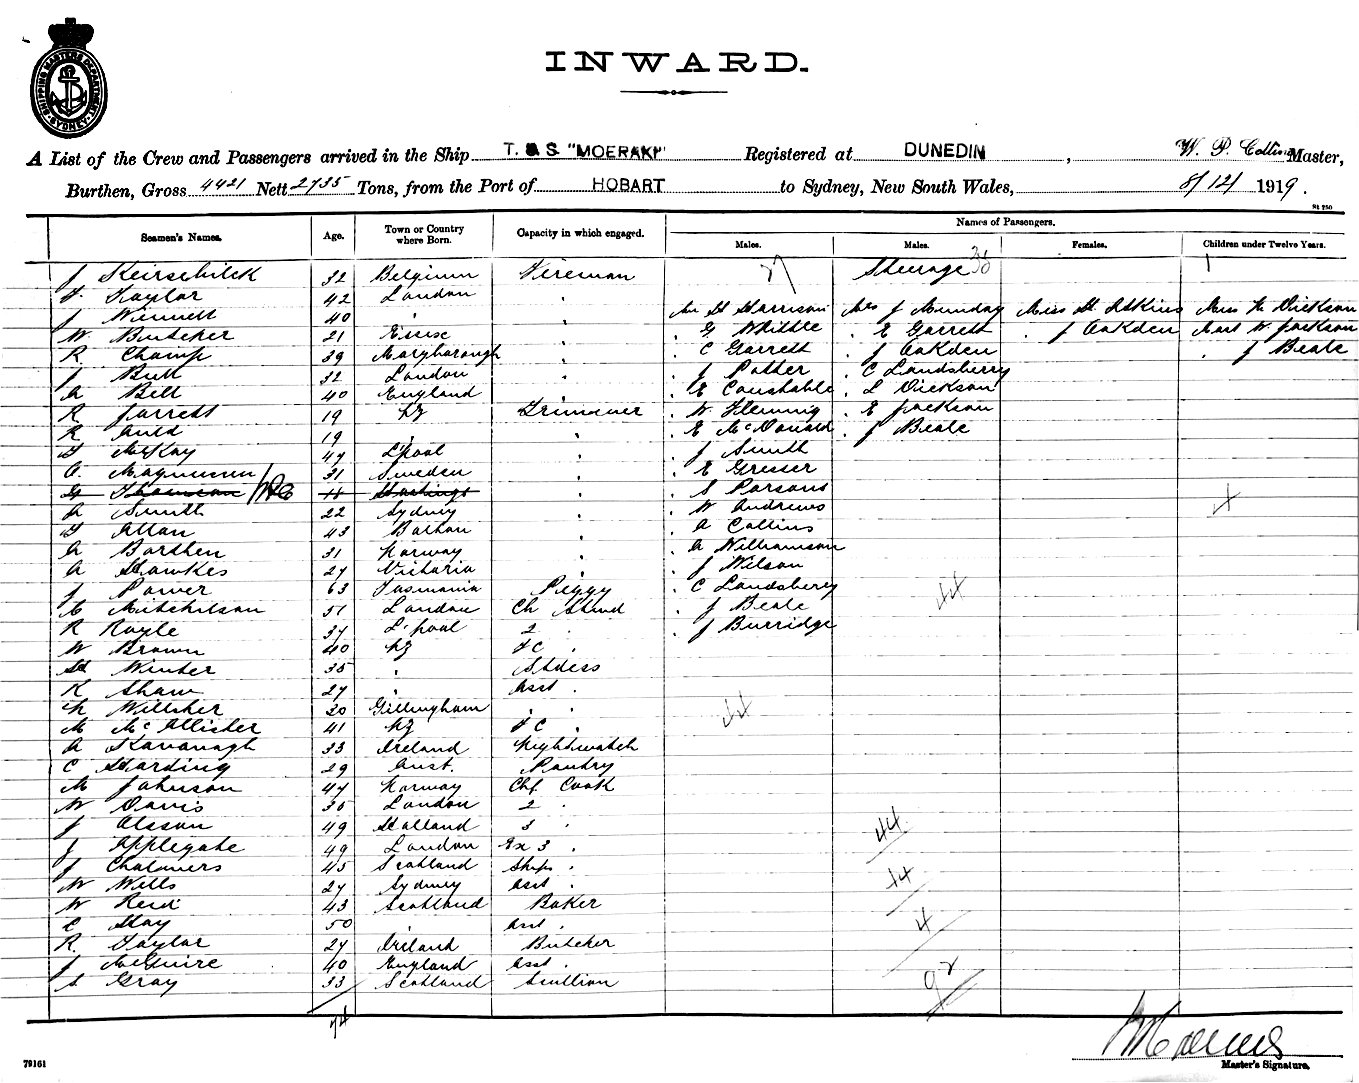 SHIPPING MASTERS DEPARTMENT SYDNEY
INWARD.
A List of the Crew and Passengers arrived in the Ship T. S. S "MOERAKI" Registered at DUNEDIN, W. P. Collins Master,
Burthen, Gross 4421 Nett 2735 Tons, from the Port of HOBART to Sydney, New South Wales, 8/12/ 1919.
Seamen's Names. Age. Town or Country where Born. Capacity in which engaged. Names of Passengers.
Males. Males. Females. Children under Twelve Years.
J 32 Belgium Fireman Steerage 38
T. Taylor 42 London "
J 40 " " H Harrison Mrs J Munday Miss H Atkins Miss N Dickson
W Butcher 21 " " G Whittle " E Garrett " J Oakden Mast W Jackson
R Champ 39 Maryborough " " C Garrett " J Oakden " J Beale
J Bull 32 London " " J Potter " C Landsberry
A Bell 40 England " " E Constable " L Dickson
R Jarrett 19 NZ Trimmer " W Fleming " E Jackson
R Auld 19 " " " E McDonald " J Beale
D McKay 47 L'pool " " J Smith
C. Magnusson 31 Sweden " " E Gresser
Thomson Hastings " " S Parsons
A Smith 22 Sydney " " W Andrews
D Allan 43 " " A Collins
A 31 Norway " " A Williamson
A Hawkes 27 Victoria " " J Wilson
J Power 63 Tasmania Peggy " C Landsberry
C Mitchelson 51 London Ch Stewd " J Beale
R Royle 37 L'pool 2 " " J Burridge
W Brown 40 NZ FC "
H Winter 35 " Stdess
K Shaw 27 " Asst "
N Willsher 20 Gillingham " "
M McAllister 41 NZ FC "
A Kavanagh 33 Ireland Nightwatch
C Harding 29 Aust. Pantry
M Johnson 47 Norway Chf Cook
W Davis 35 London 2 "
J Olsson 49 Holland 3 "
J Applegate 49 London Ex 3 "
J Chalmers 45 Scotland Ships "
W Wells 27 Sydney Asst "
W Reid 43 Scotland Baker
C Hay 50 " Asst "
R. Taylor 27 Ireland Butcher
J McGuire 40 England Asst "
S Gray 33 Scotland Scullion
44
44
44
14
4
92
74
79161
Master's Signature.